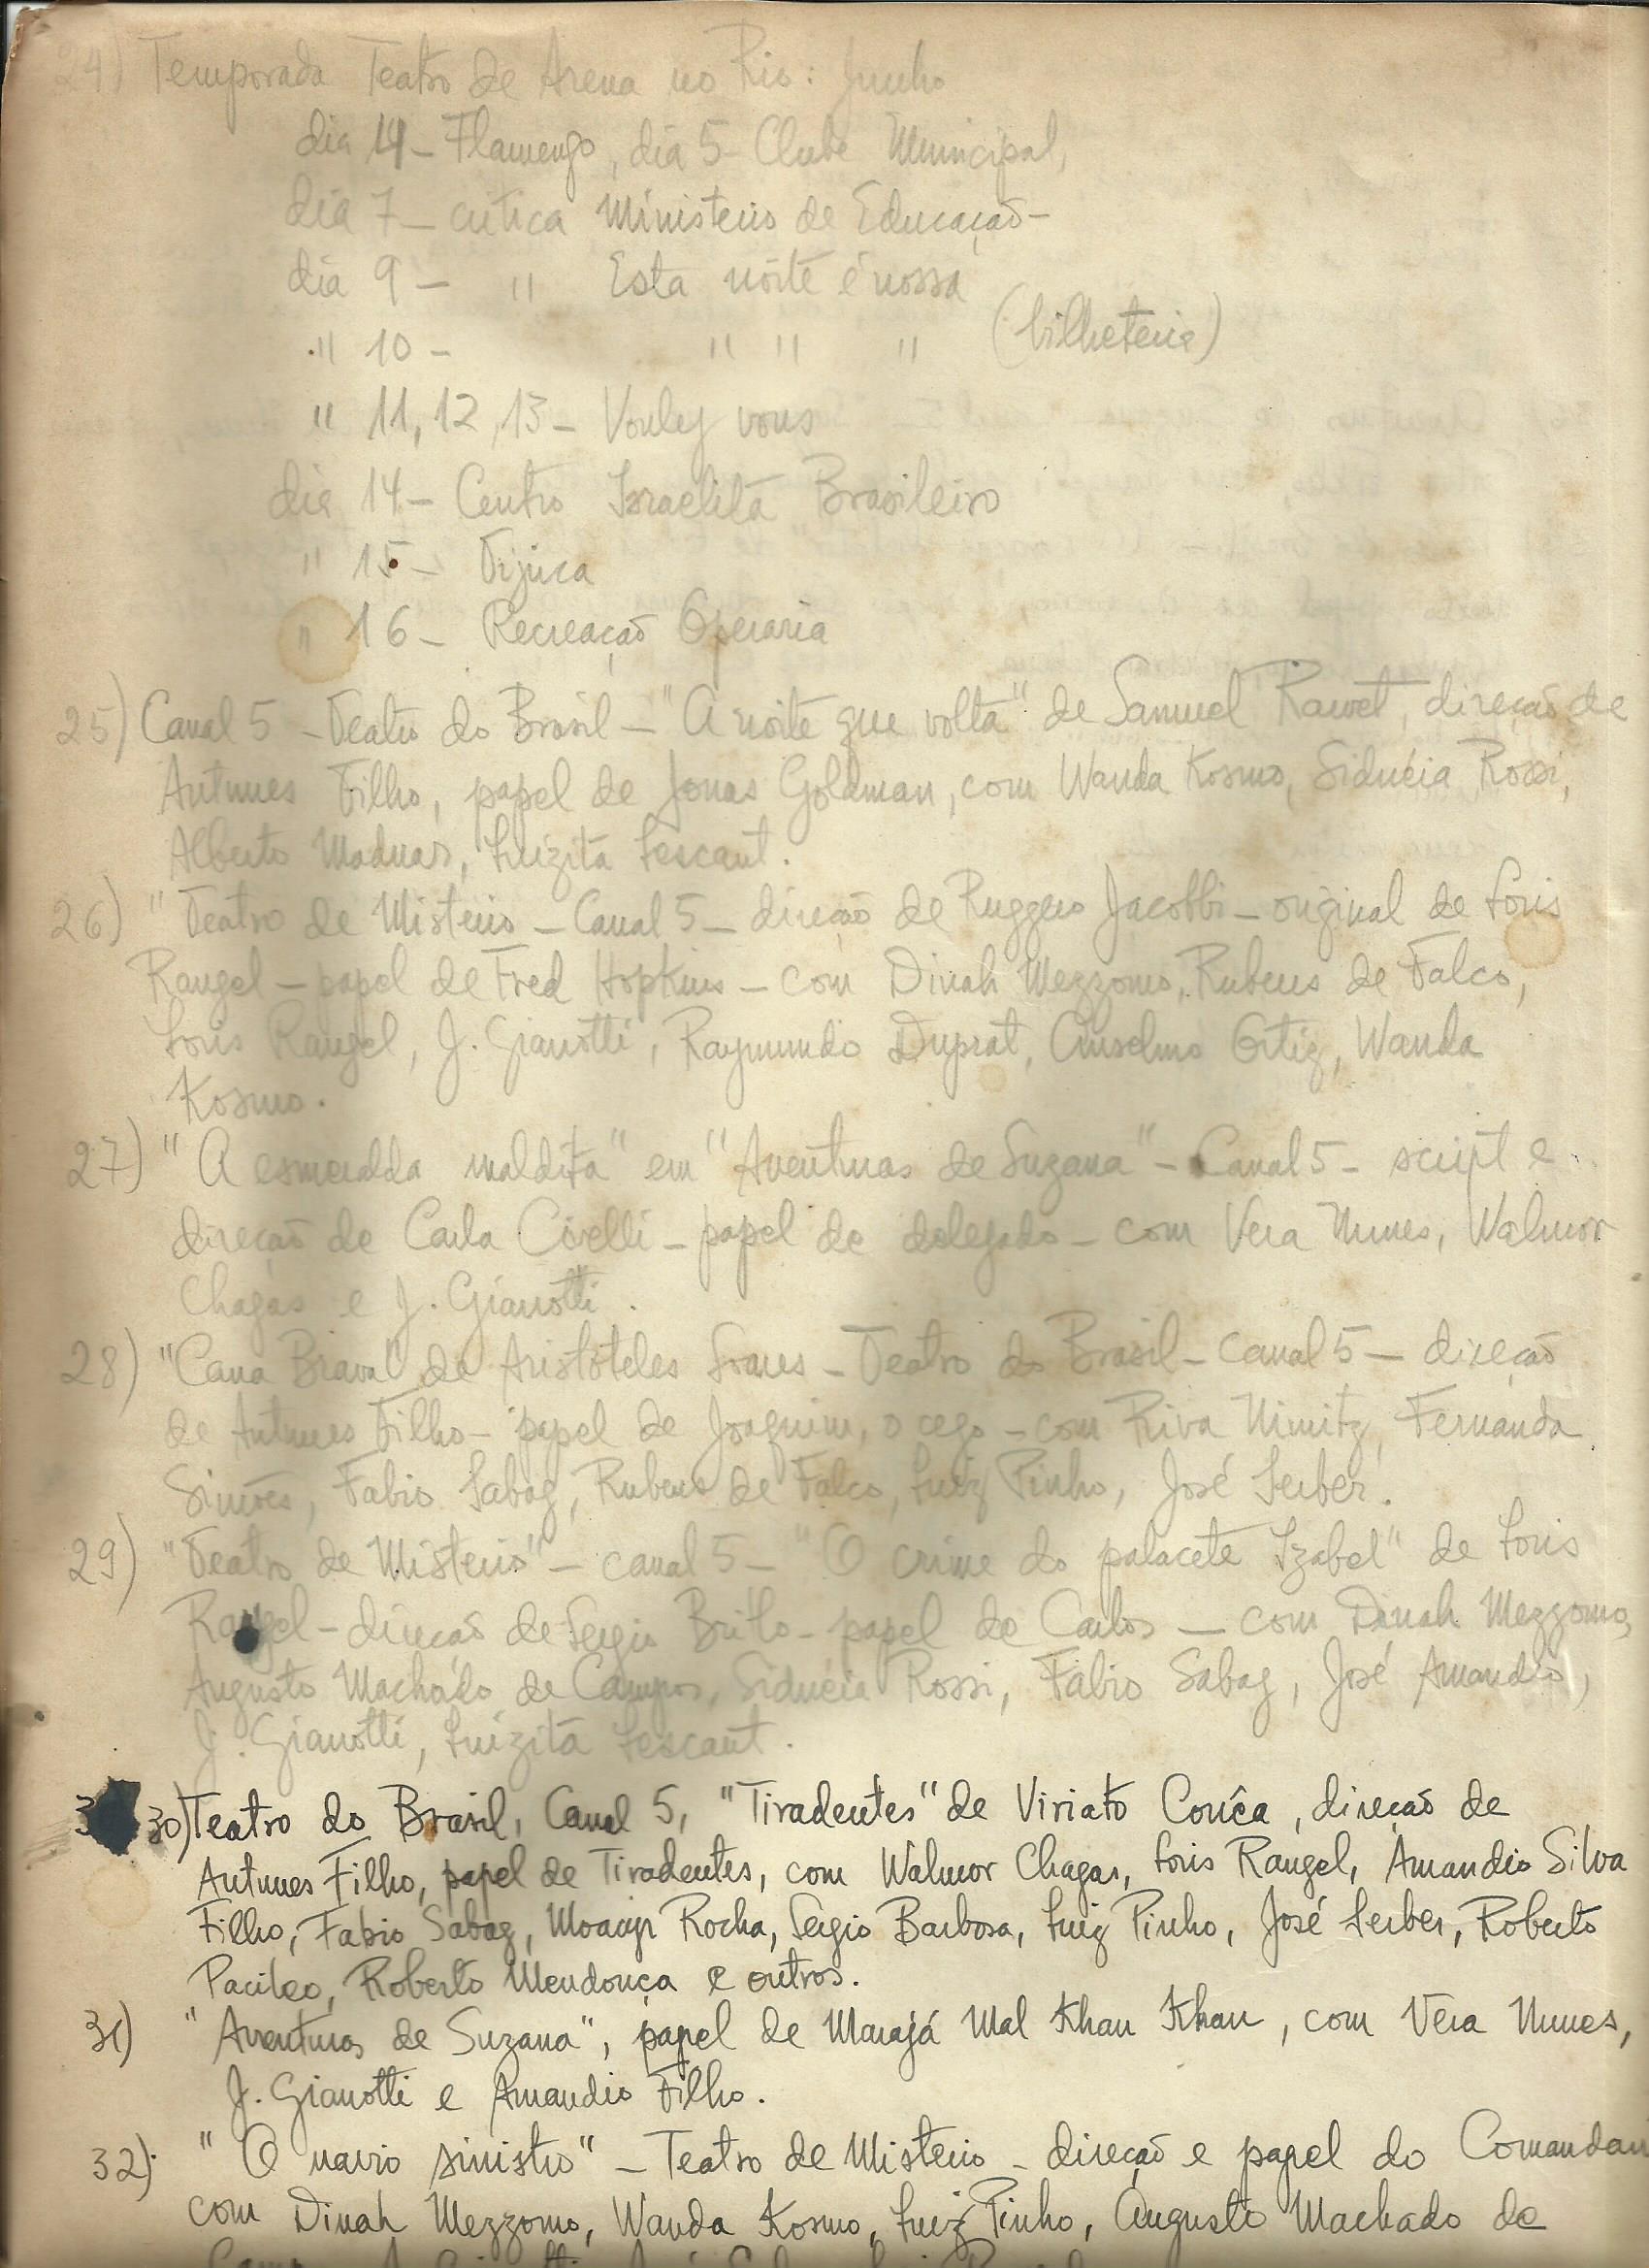 24) Temporada Teatro de Arena no Rio: Junho
dia 4 - Flamengo, dia 5 - Clube Municipal,
dia 7 - critica Ministerio de Educação -
dia 9 - " Esta noite é nossa
" 10 - " " " (bilheteria)
" 11, 12, 13 - Voulez vous
dia 14 - Centro Israelita Brasileiro
" 15 - Tijuca
" 16 - Recreação Operaria
25) Canal 5 - Teatro do Brasil - "A noite que volta" de Samuel Rawet, direção de
Antunes Filho, papel de Jonas Goldman, com Wanda Kosmo, Siducéia Rossi,
Alberto Maduar, Luizita Lescaut.
26) "Teatro de Misterio - Canal 5 - direção de Ruggero Jacobbi - original de Loris
Rangel - papel de Fred Hopkins - com Dinah Mezzomo, Rubens de Falco,
Loris Rangel, J. Gianotti, Raymundo Duprat, Anselmo Ortiz, Wanda
Kosmo.
27) "A esmeralda maldita" em "Aventuras de Suzana" - Canal 5 - script e
direção de Carla Civelli - papel de delegado - com Vera Nunes, Walmor
Chagas e J. Gianotti.
28) "Cana Brava" de Aristóteles Soares - Teatro do Brasil - canal 5 - direção
de Antunes Filho - papel de Joaquim, o cego - com Riva Nimitz, Fernanda
Simões, Fabio Sabag, Rubens de Falco, Luiz Pinho, José Serber.
29) "Teatro de Misterio" - canal 5 - "O crime do palacete Izabel" de Loris
Rangel - direção de Sergio Britto - papel de Carlos - com Dinah Mezzomo,
Augusto Machado de Campos, Siducéia Rossi, Fabio Sabag, José Amandio,
J. Gianotti, Luizita Lescaut.
30) Teatro do Brasil, Canal 5, "Tiradentes" de Viriato Corrêa, direção de
Antunes Filho, papel de Tiradentes, com Walmor Chagas, Loris Rangel, Amandio Silva
Filho, Fabio Sabag, Moacyr Rocha, Sergio Barbosa, Luiz Pinho, José Serber, Roberto
Pacileo, Roberto Mendonça e outros.
31) "Aventuras de Suzana", papel de Marajá Mal Khan Khan, com Vera Nunes,
J. Gianotti e Amandio Filho.
32) "O navio sinistro" - Teatro de Misterio - direção e papel do Comandan
com Dinah Mezzomo, Wanda Kosmo, Luiz Pinho, Augusto Machado de